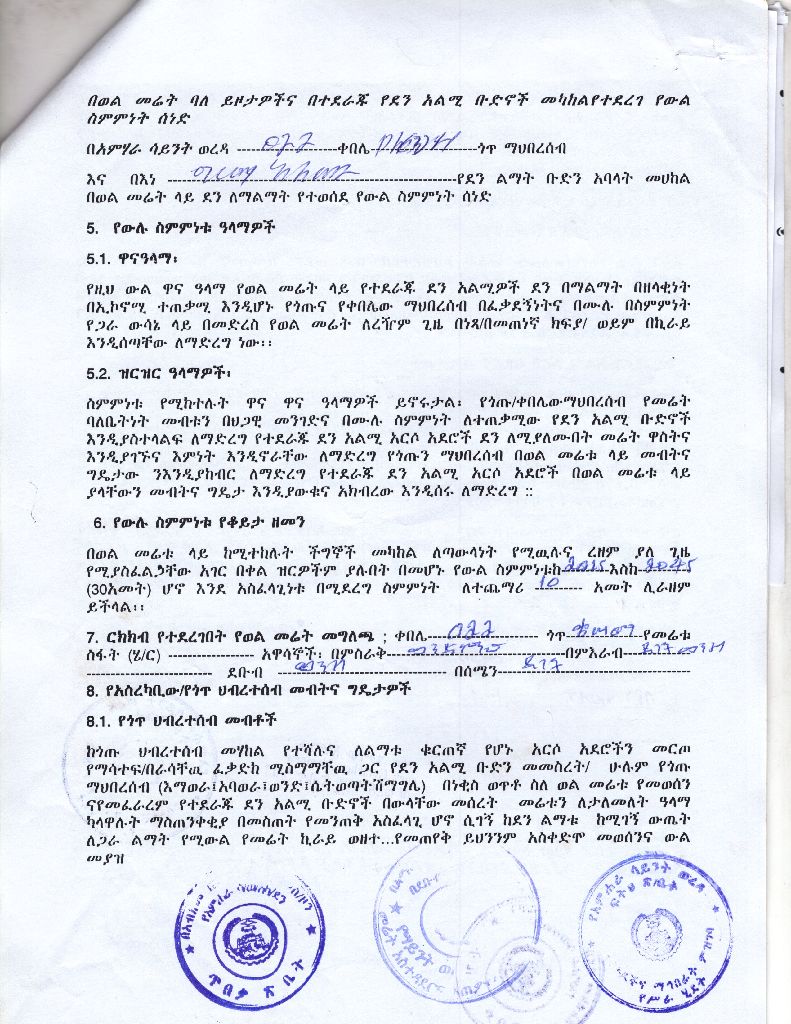 በወል መሬት ባለ ይዞታዎችና በተደራጁ የደን አልሚ ቡድኖች መካከልየተደረገ የውል
ስምምነት ሰነድ
በአምሃራ ሳይንት ወረዳ ------------------ቀበሌ ------------------ጎጥ ማህበረሰብ
እና በእነ ------------------------------------------የደን ልማት ቡድን አባላት መሀከል
በወል መሬት ላይ ደን ለማልማት የተወሰደ የውል ስምምነት ሰነድ
5. የውሉ ስምምነቱ ዓላማዎች
5.1. ዋናዓላማ፡
የዚህ ውል ዋና ዓላማ የወል መሬት ላይ የተደራጁ ደን አልሚዎች ደን በማልማት በዘላቂነት
በኢኮኖሚ ተጠቃሚ እንዲሆኑ የጎጡና የቀበሌው ማህበረሰብ በፈቃደኝነትና በሙሉ በስምምነት
የጋራ ውሳኔ ላይ በመድረስ የወል መሬት ለረዥም ጊዜ በነጻ/በመጠነኛ ክፍያ/ ወይም በኪራይ
እንዲሰጣቸው ለማድረግ ነው፡፡
5.2. ዝርዝር ዓላማዎች፡
ስምምነቱ የሚከተሉት ዋና ዋና ዓላማዎች ይኖሩታል፡ የጎጡ/ቀበሌውማህበረሰብ የመሬት
ባለቤትነት መብቱን በህጋዊ መንገድና በሙሉ ስምምነት ለተጠቃሚው የደን አልሚ ቡድኖች
እንዲያስተላልፍ ለማድረግ የተደራጁ ደን አልሚ አርሶ አደሮች ደን ለሚያለሙበት መሬት ዋስትና
እንዲያገኙና እምነት እንዲኖራቸው ለማድረግ የጎጡን ማህበረሰብ በወል መሬቱ ላይ መብትና
ግዴታው ንእንዲያከብር ለማድረግ የተደራጁ ደን አልሚ አርሶ አደሮች በወል መሬቱ ላይ
ያላቸውን መብትና ግዴታ እንዲያውቁና አክብረው እንዲሰሩ ለማድረግ ::
6. የውሉ ስምምነቱ የቆይታ ዘመን
በወል መሬቱ ላይ ከሚተከሉት ችግኞች መካከል ለጣውላነት የሚዉሉና ረዘም ያለ ጊዜ
የሚያስፈልጋቸው አገር በቀል ዝርዎችም ያሉበት በመሆኑ የውል ስምምነቱከ 2015 እስከ 2045
(30አመት) ሆኖ እንደ አስፈላጊነቱ በሚደረግ ስምምነት ለተጨማሪ 10 አመት ሊራዘም
ይችላል፡፡
7. ርክክብ የተደረገበት የወል መሬት መግለጫ ; ቀበሌ------------------ ጎጥ ------------የመሬቱ
ስፋት (ሄ/ር) ---------------- አዋሳኞች፡ በምስራቅ------------------------በምእራብ------------
------------------ ደቡብ ---------------------- በሰሜን--------------------------
8. የአስረካቢው/የጎጥ ህብረተሰብ መብትና ግዴታዎች
8.1. የጎጥ ህብረተሰብ መብቶች
ከጎጡ ህብረተሰብ መሃከል የተሻሉና ለልማቱ ቁርጠኛ የሆኑ አርሶ አደሮችን መርጦ
የማሳተፍ/በራሳቸዉ ፈቃድከ ሚስማማቸዉ ጋር የደን አልሚ ቡድን መመስረት/ ሁሉም የጎጡ
ማህበረሰብ (እማወራ፤አባወራ፤ወንድ፤ሴትወጣትሽማግሌ) በነቂስ ወጥቶ ስለ ወል መሬቱ የመወሰን
ናየመፈራረም የተደራጁ ደን አልሚ ቡድኖች በውላቸው መሰረት መሬቱን ለታለመለት ዓላማ
ካላዋሉት ማስጠንቀቂያ በመስጠት የመንጠቅ አስፈላጊ ሆኖ ሲገኝ ከደን ልማቱ ከሚገኝ ውጤት
ለጋራ ልማት የሚውል የመሬት ኪራይ ወዘተ...የመጠየቅ ይህንንም አስቀድሞ መወሰንና ውል
መያዝ
ጥበቃ ጽ ቤት
የአምሐራ ሳይንት ወረዳ
ፍትህ ጽ/ቤት
የሥራ ሂደት